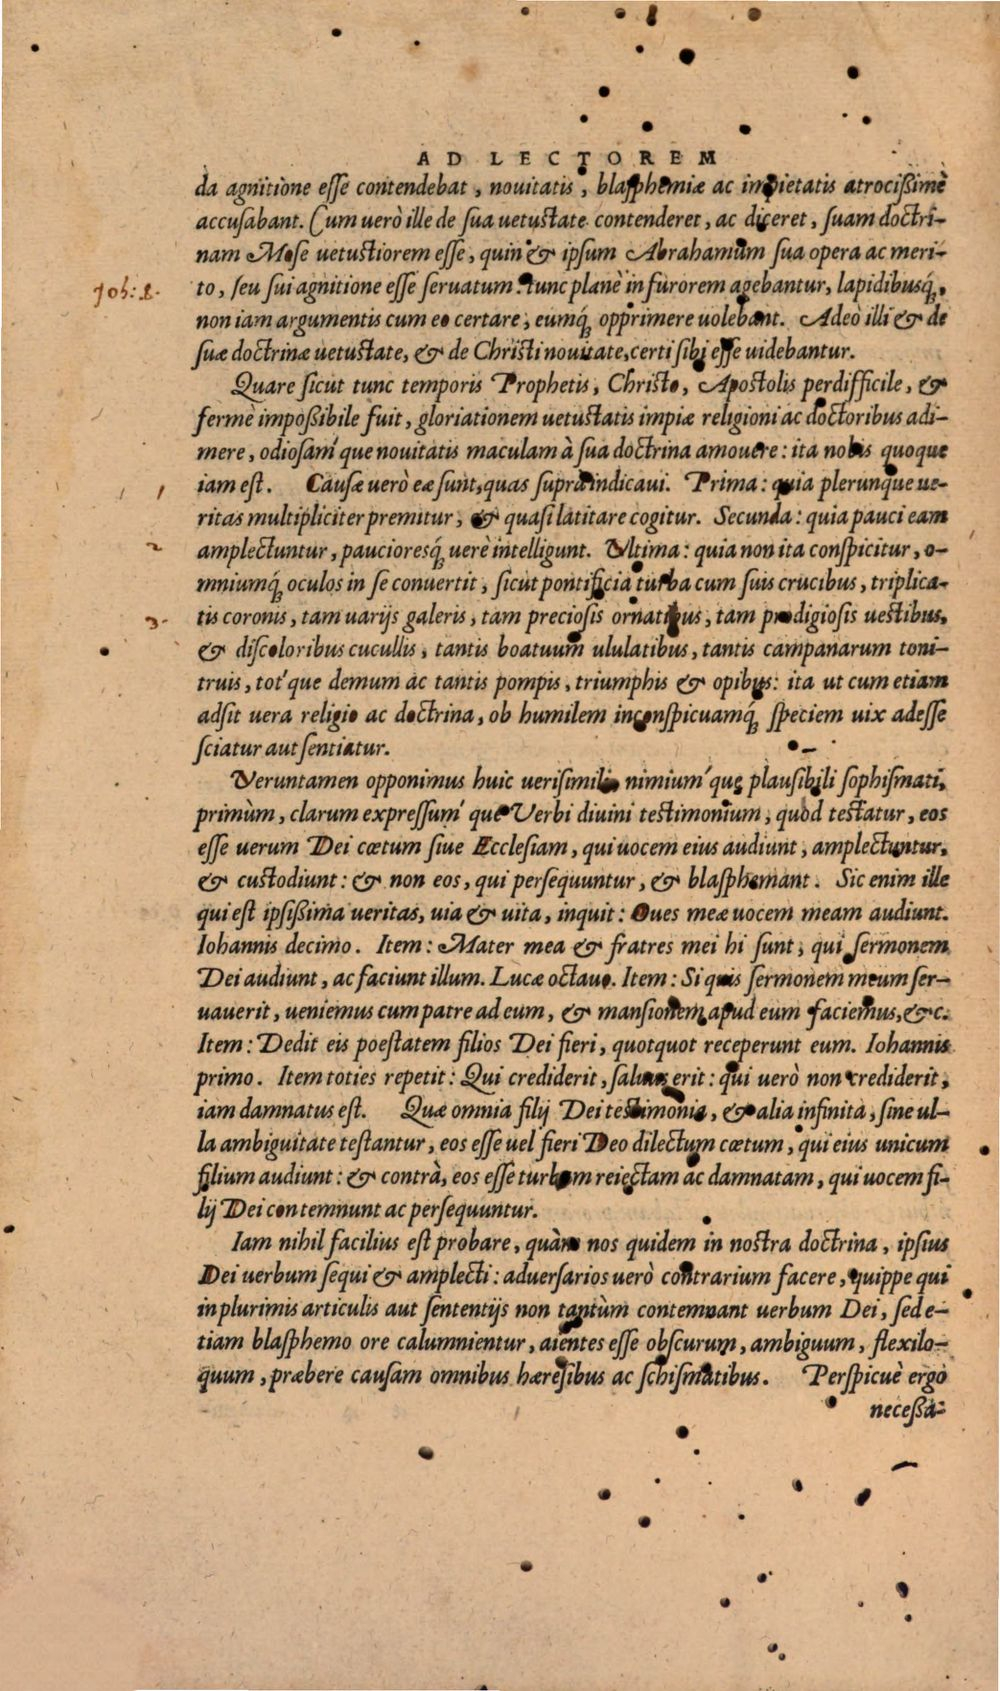 AD LECTOREM
da agnitione esse contendebat, nouitatis, blasphemiæ ac impietatis atrocißimè
accusabant. Cum uerò ille de sua uetustate contenderet, ac diceret, suam doctri-
nam Mose uetustiorem esse, quin & ipsum Abrahamum sua opera ac meri-
Joh: 8.
to, seu sui agnitione esse seruatum: tunc planè in furorem agebantur, lapidibusq́;
non iam argumentis cum eo certare, eumq́; opprimere uolebant. Adeò illi & de
suæ doctrinæ uetustate, & de Christi nouitate, certi sibi esse uidebantur.
Quare sicut tunc temporis Prophetis, Christo, Apostolis perdifficile, &
fermè impoßibile fuit, gloriationem uetustatis impiæ religioni ac doctoribus adi-
mere, odiosaḿque nouitatis maculam à sua doctrina amouere: ita nobis quoque
1
iam est. Causæ uerò eæ sunt, quas supra indicaui. Prima: quia plerunque ue-
ritas multipliciter premitur, & quasi latitare cogitur. Secunda: quia pauci eam
2
amplectuntur, paucioresq́; uerè intelligunt. Vltima: quia non ita conspicitur, o-
mniumq́; oculos in se conuertit, sicut pontificia turba cum suis crucibus, triplica-
3.
tis coronis, tam uarijs galeris, tam preciosis ornatibus, tam prodigiosis uestibus,
& discoloribus cucullis, tantis boatuum ululatibus, tantis campanarum toni-
truis, tot́que demum ac tantis pompis, triumphis & opibus: ita ut cum etiam
adsit uera religio ac doctrina, ob humilem inconspicuamq́; speciem uix adesse
sciatur aut sentiatur.
Veruntamen opponimus huic uerisimili, nimium´que plausibili sophismati,
primùm, clarum expressum´que Verbi diuini testimonium, quod testatur, eos
esse uerum Dei cœtum siue Ecclesiam, qui uocem eius audiunt, amplectuntur,
& custodiunt: & non eos, qui persequuntur, & blasphemant. Sic enim ille
qui est ipsißima ueritas, uia & uita, inquit: Oues meæ uocem meam audiunt.
Iohannis decimo. Item: Mater mea & fratres mei hi sunt, qui sermonem
Dei audiunt, ac faciunt illum. Lucæ octauo. Item: Si quis sermonem meum ser-
uauerit, ueniemus cum patre ad eum, & mansionem apud eum faciemus, &c.
Item: Dedit eis poestatem filios Dei fieri, quotquot receperunt eum. Iohannis
primo. Item toties repetit: Qui crediderit, saluus erit: qui uerò non crediderit,
iam damnatus est. Quæ omnia filij Dei testimonia, & alia infinita, sine ul-
la ambiguitate testantur, eos esse uel fieri Deo dilectum cœtum, qui eius unicum
filium audiunt: & contrà, eos esse turbam reiectam ac damnatam, qui uocem fi-
lij Dei contemnunt ac persequuntur.
Iam nihil facilius est probare, quàm nos quidem in nostra doctrina, ipsius
Dei uerbum sequi & amplecti: aduersarios uerò contrarium facere, quippe qui
in plurimis articulis aut sententijs non tantùm contemnant uerbum Dei, sed e-
tiam blasphemo ore calumnientur, aientes esse obscurum, ambiguum, flexilo-
quum, præbere causam omnibus hæresibus ac schismatibus. Perspicuè ergo
neceßa-